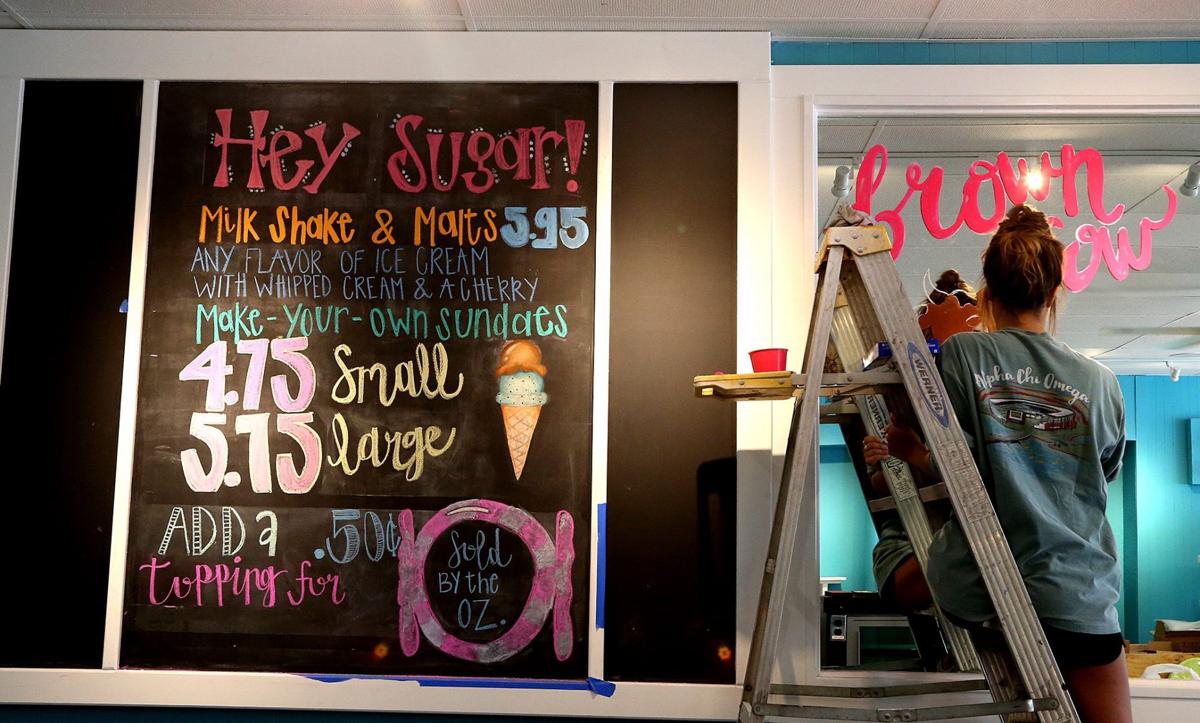 Hey Sugar!
Milk Shake & Malts 5.95
ANY FLAVOR OF ICE CREAM
WITH WHIPPED CREAM & A CHERRY
Make-your-own sundaes
4.75 Small
5.75 large
ADD a
.50¢
topping for
Sold
BY the
OZ.
brown
WERNER
Alpha Chi Omega